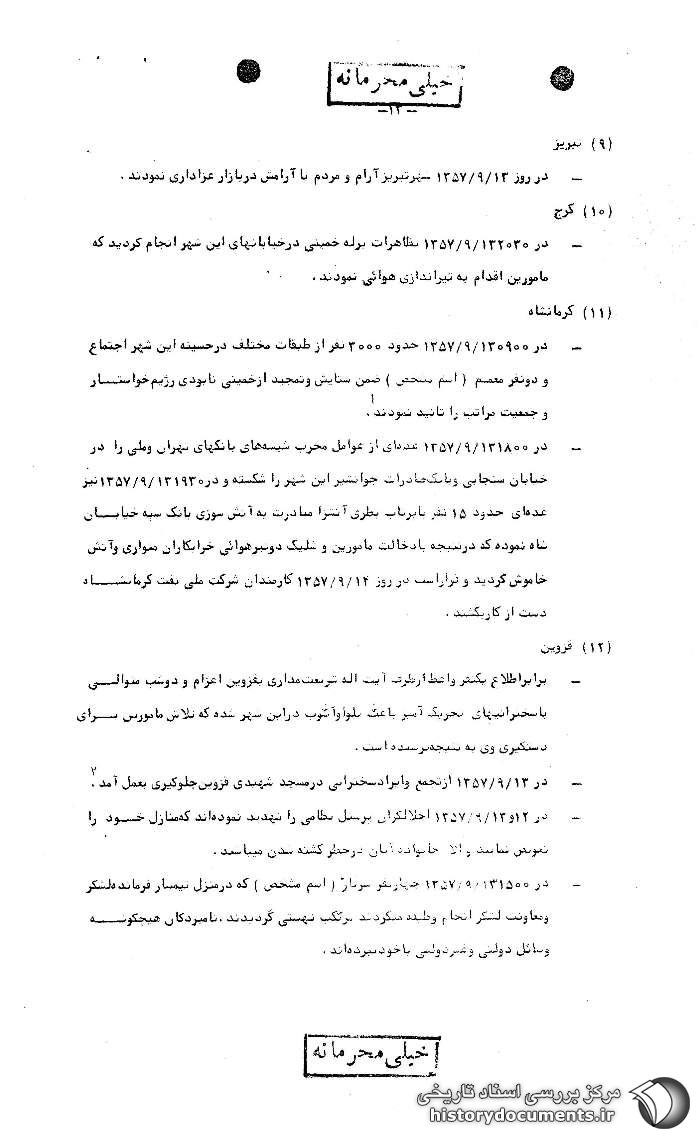 خیلی محرمانه
-۱۳-
(۹) تبریز
– در روز ۱۳۵۷/۹/۱۳ شهر تبریز آرام و مردم با آرامش در بازار عزاداری نمودند .
(۱۰) کرج
– در ۱۳۵۷/۹/۱۳۲۰۳۰ تظاهرات برله خمینی در خیابانهای این شهر انجام گردید که
مامورین اقدام به تیراندازی هوائی نمودند .
(۱۱) کرمانشاه
– در ۱۳۵۷/۹/۱۳۰۹۰۰ حدود ۳۰۰۰ نفر از طبقات مختلف در حسینه این شهر اجتماع
و دونفر معمم ( اسم مشخص ) ضمن ستایش وتمجید ازخمینی نابودی رژیم خواستار
و جمعیت مراتب را تائید نمودند .۱
– در ۱۳۵۷/۹/۱۳۱۸۰۰ عده‌ای از عوامل مخرب شیشه‌های بانکهای تهران وملی را در
خیابان سنجابی وبانک صادرات جوانشیر این شهر را شکسته و در ۱۳۵۷/۹/۱۳۱۹۳۰ نیز
عده‌ای حدود ۱۵ نفر باپرتاب بطری آتشزا مبادرت به آتش سوزی بانک سپه خیابان
شاه نموده که درنتیجه بادخالت مامورین و شلیک دوتیرهوائی خرابکاران متواری وآتش
خاموش گردید و قراراست در روز ۱۳۵۷/۹/۱۴ کارمندان شرکت ملی نفت کرمانشاه
دست از کاربکشند .
(۱۲) قزوین
– برابراطلاع یکنفر واعظ ازطرف آیت اله شریعتمداری بقزوین اعزام و دوشب متوالی
باسخنرانیهای تحریک آمیز باعث بلواوآشوب دراین شهر شده که تلاش مامورین برای
دستگیری وی به نتیجه نرسیده است .
– در ۱۳۵۷/۹/۱۳ ازتجمع وایرادسخنرانی درمسجد شهیدی قزوین جلوگیری بعمل آمد .۲
– در ۱۲و۱۳۵۷/۹/۱۳ اخلالگران پرسنل نظامی را تهدید نموده‌اند که منازل خود را
تعویض نمایند و الا خانواده آنان درخطر کشته شدن میباشد .
– در ۱۳۵۷/۹/۱۳۱۵۰۰ چهارنفر سرباز ( اسم مشخص ) که درمنزل تیمسار فرمانده لشکر
ومعاونت لشکر انجام وظیفه میکردند مرتکب نهستی گردیدند ،نامبردگان هیچگونه
وسائل دولتی وغیردولتی باخودنبرده‌اند .
خیلی محرمانه
مرکز بررسی اسناد تاریخی
historydocuments.ir